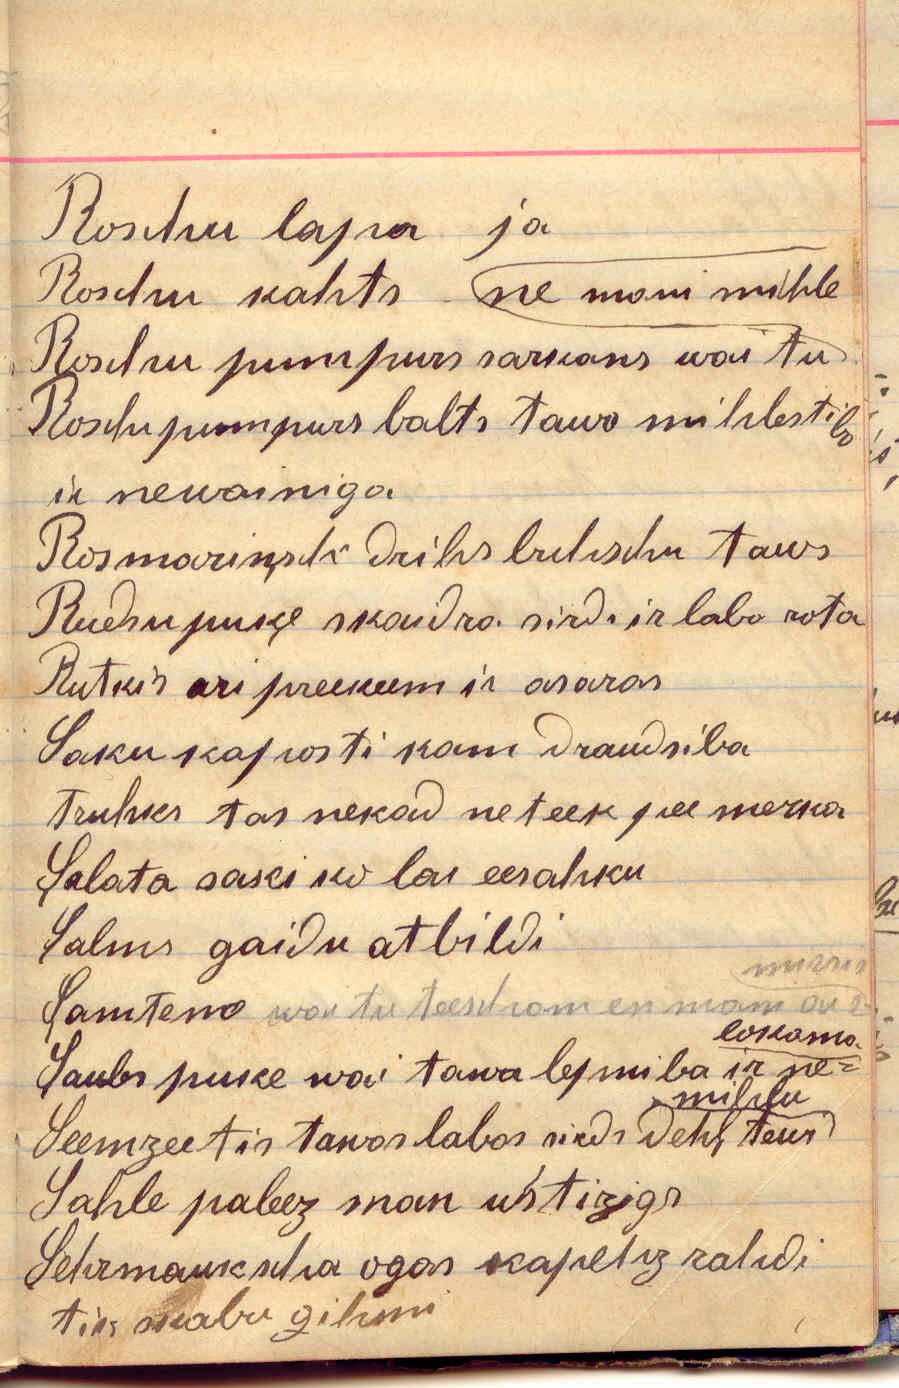 Roschu lapa ja
Roschu kahts ne mani mihle
Roschu pumpurs sarkans wai tu
Roschu pumpurs balts tawa mihlestiba
ir newainiga
Rosmarinsch drihs buhschu taws
Rudsu puķe skaidra sirds ir laba rota
Rutkis ari preekeem ir asaras
Saku kaposti kam draudsiba
truhks tas nekad ne teek pee merķa
Salata saki ko lai eesahku
Salms gaidu atbildi
Samtene wai tu teescham en mani
Saules puķe wai tawa lepniba ir ne=
lokama
Seemzeetis tawas labas sirds dehļ tewi
mihlu
Sahle paleez man ustizigs
Sehrmaukscha ogas kapehz rahdi
tik skabu gihmi